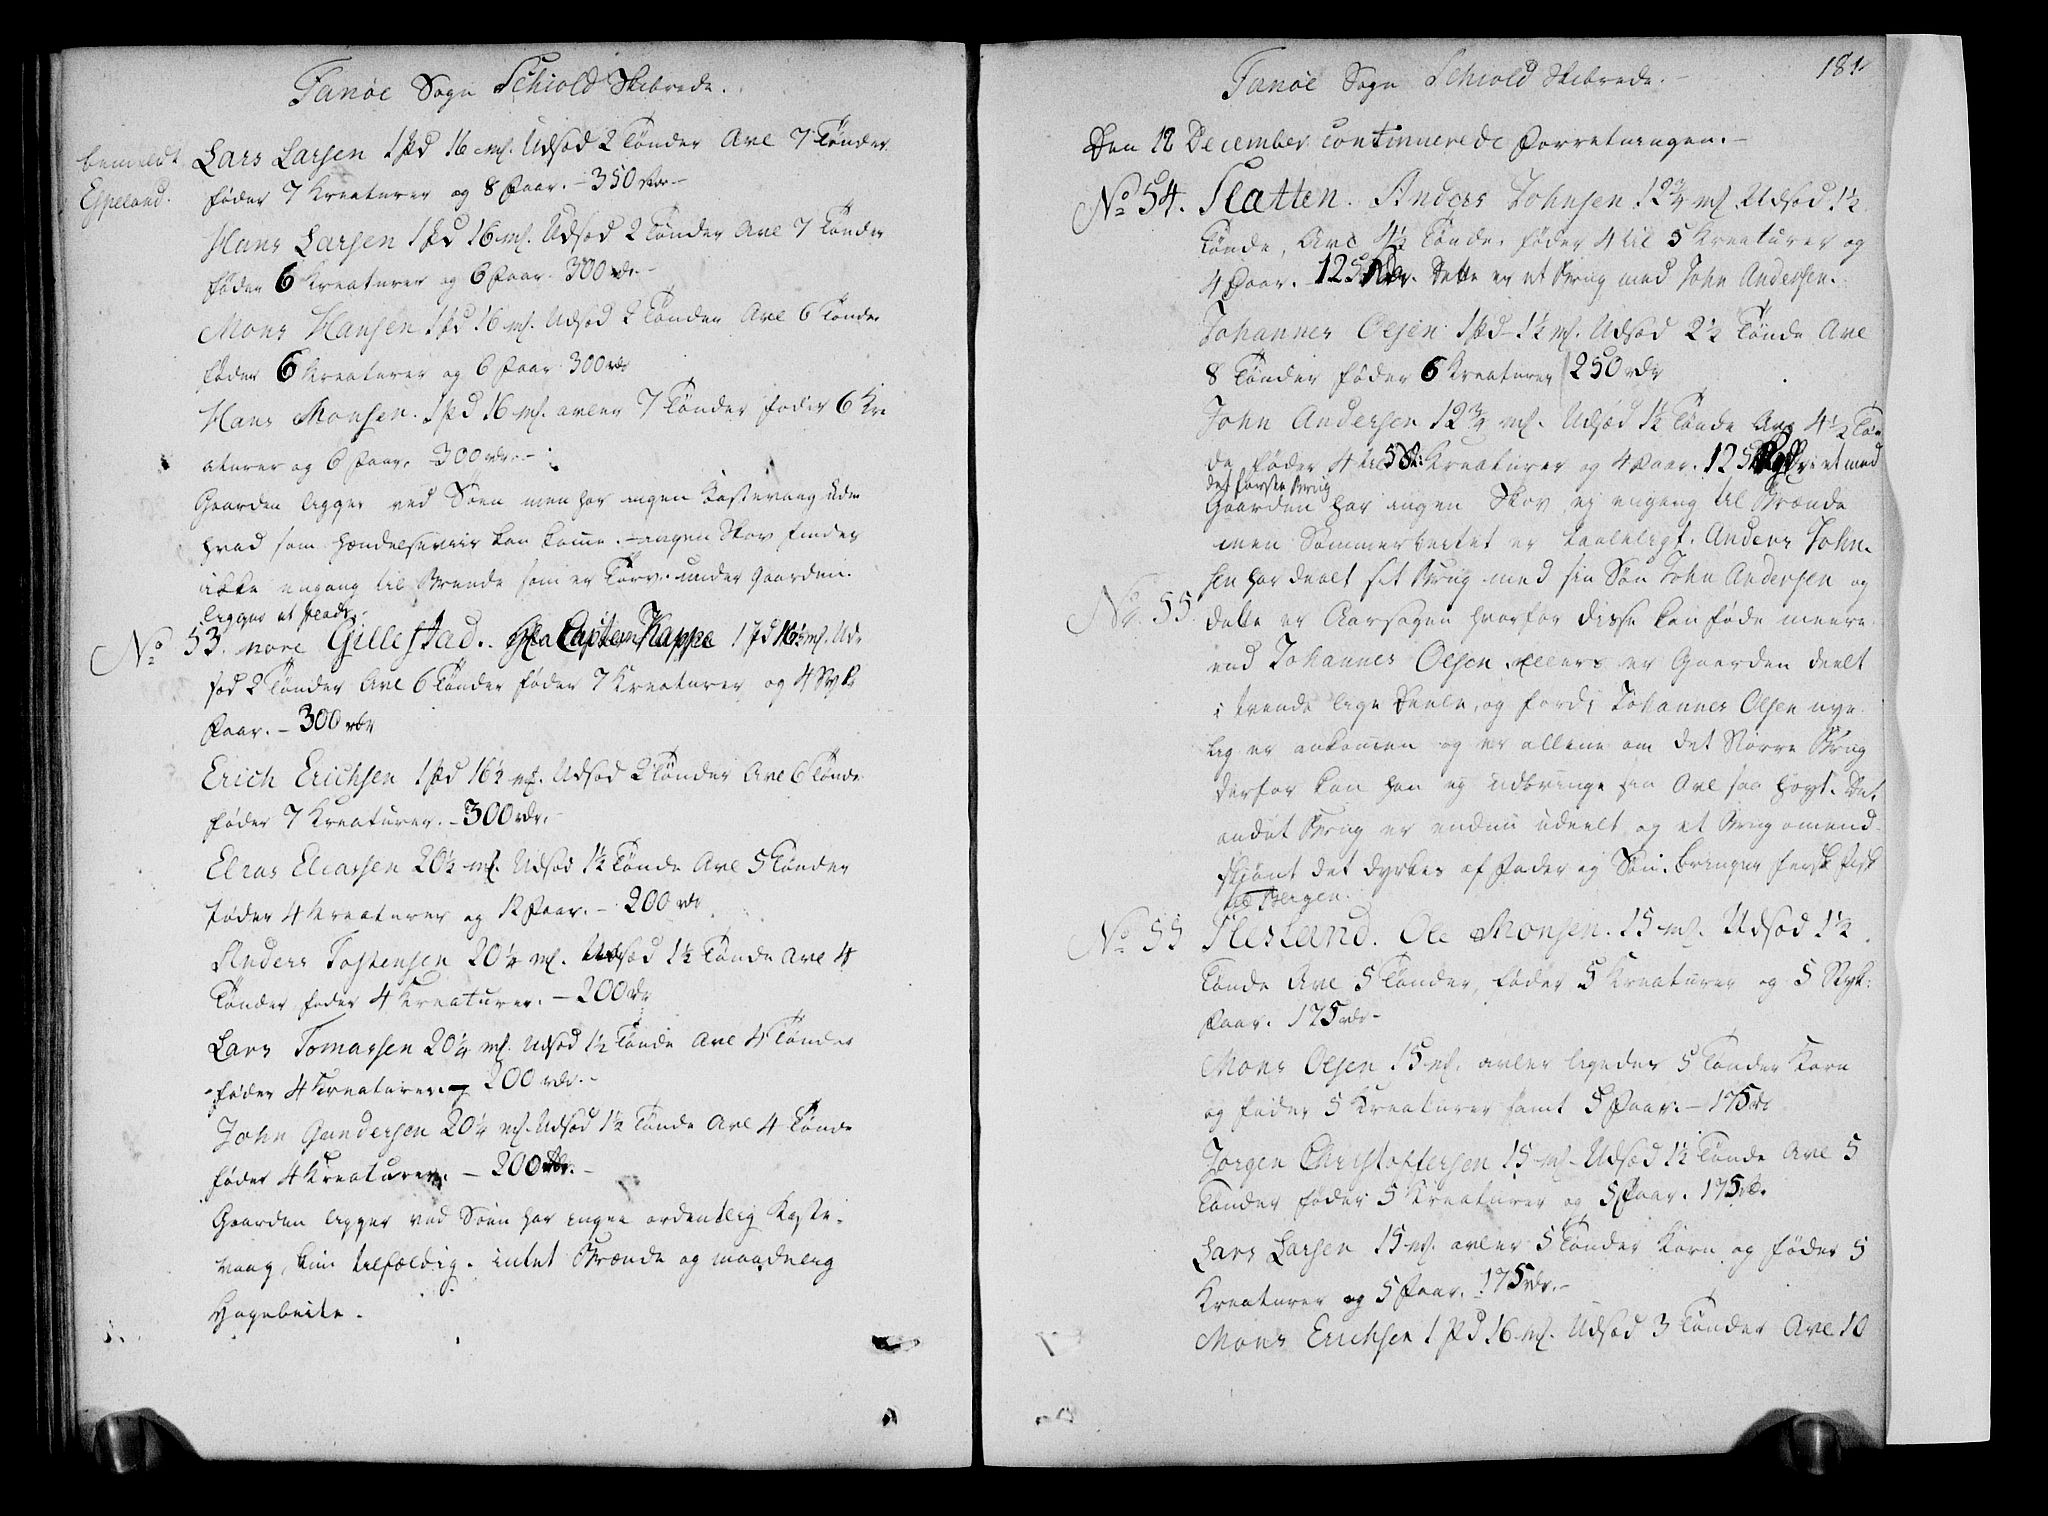 Fanøe Sogn Schiold Skibrede.
bemeldt
Espeland.
Lars Larsen 1 Pd 16 mk. Udsød 2 Tønder Avl 7 Tønder
føder 7 Kreaturer og 8 Faar. – 350 rdr –
Hans Larsen 1 Pd 16 mk. Udsød 2 Tønder Avl 7 Tønder
føder 6 Kreaturer og 6 Faar. 300 rdr. –
Mons Hansen 1 Pd 16 mk. Udsød 2 Tønder Avl 6 Tønder
føder 6 Kreaturer og 6 Faar 300 rdr
Hans Monsen. 1 Pd 16 mk. avler 7 Tønder føder 6 Kre
aturer og 6 Faar. 300 rdr. –
Gaarden ligger ved Søen men har ingen Kastevaag uden
hvad som hændelseviis kan komme. – ingen Skov findes
ikke engang til Brende som er Torv. under Gaarden.
ligger et Plads
No 53. nore Gillestad. Captein Kappe 1 Pd 16½ mk. Ud-
sød 2 Tønder Avl 6 Tønder føder 7 Kreaturer og 4 Stykr
Faar. – 300 rdr
Erich Erichsen 1 Pd 16½ mk. Udsød 2 Tønder Avl 6 Tønder
føder 7 Kreaturer. – 300 rdr. –
Elias Eliassen 20¼ mk. Udsød 1½ Tønde Avl 5 Tønder
føder 4 Kreaturer og 12 Faar. – 200 rdr
Anders Tostensen 20¼ mk. Udsød 1½ Tønde Avl 4
Tønder føder 4 Kreaturer. – 200 rdr
Lars Tomassen 20¼ mk. Udsød 1½ Tønde Avl 4 Tønder
føder 4 Kreaturer. – 200 rdr. –
John Gundersen 20¼ mk. Udsød 1½ Tønde Avl 4 Tønder
føder 4 Kreaturer. – 200 rdr. –
Gaarden ligger ved Søen har ingen ordentlig Kaste-
vaag, kun tilfældig. intet Brænde og maadelig
Hagebeite.
Fanøe Sogn Schiold Skibrede. –
181
Den 12 December continuerede Forretningen. –
No 54. Slatten. Anders Johnsen 12¾ mk. Udsød 1½
Tønde, Avl 4½ Tønde, føder 4 til 5 Kreaturer og
4 Faar. 125 Rdr. Dette er et Brug med John Andersen.
Johannes Olsen 1 Pd 1½ mk. Udsød 2½ Tønde Avl
8 Tønder føder 6 Kreaturer 250 rdr
John Andersen 12¾ mk. Udsød 1½ Tønde Avl 4½ Tøn
de føder 4 til 5 St: Kreaturer og 4 Faar. 125 et med
det første Brug
Gaarden har ingen Skov ej engang til Brænde
men Sommerbeitet er taaleligt. Anders John-
sen har deelt sit Brug med sin Søn John Andersen og
No. 55.
dette er Aarsagen hvorfor disse kan føde meere
end Johannes Olsen, ellers er Gaarden deelt
i tvende lige Deele, og fordi Johannes Olsen nye
lig er ankommen og er allene om det Større Brug
derfor kan han ej udbringe sin Avl saa høyt. Det
andet Brug er endnu udeelt og et Brug omend
skiønt det dyrkes af Fader og Søn. bringer fersk Fisk
til Bergen.
No 55 Flesland. Ole Monsen. 15 mk. Udsød 1½
Tønde Avl 5 Tønder, føder 5 Kreaturer og 5 Styk:
Faar. 175 rdr –
Mons Olsen 15 mk. avler ligedes 5 Tønder Korn
og føder 5 Kreaturer samt 5 Faar. – 175 rdr
Jørgen Christoffersen 15 mk. Udsød 1½ Tønde Avl 5
Tønder føder 5 Kreaturer og 5 Faar. 175 rdr.
Lars Larsen 15 mk. avler 5 Tønder Korn og føder 5
Kreaturer og 5 Faar. 175 rdr. –
Mons Erichsen 1 Pd 16 mk. Udsød 3 Tønder Avl 10